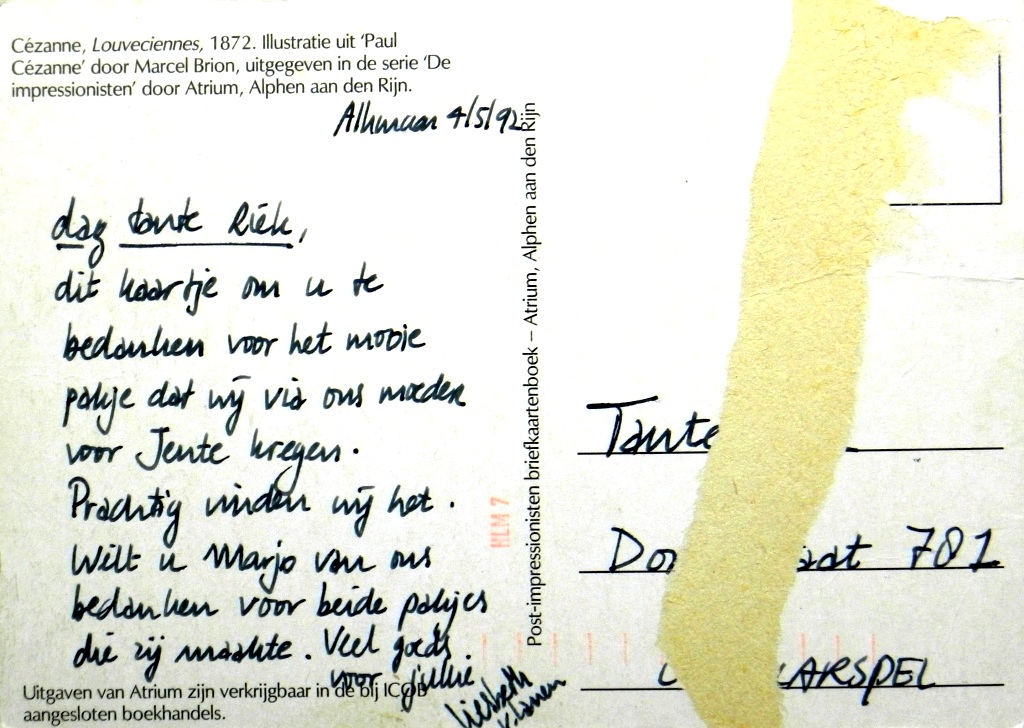 Cézanne, Louveciennes, 1872. Illustratie uit ‘Paul
Cézanne’ door Marcel Brion, uitgegeven in de serie ‘De
impressionisten’ door Atrium, Alphen aan den Rijn.
Alkmaar 4/5/92
dag tante Riek,
dit kaartje om u te
bedanken voor het mooie
pakje dat wij via ons moeder
voor Jente kregen.
Prachtig vinden wij het.
Wilt u Marjo van ons
bedanken voor beide pakjes
die zij maakte. Veel goeds.
voor jullie
Liesbeth
Uitgaven van Atrium zijn verkrijgbaar in de bij ICOB
aangesloten boekhandels.
Post-impressionisten briefkaartenboek – Atrium, Alphen aan den Rijn
Tante
781